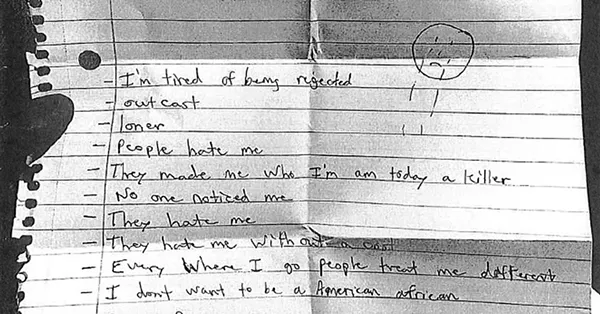 - I'm tired of being rejected
- outcast
- loner
- People hate me
- They made me who I'm am today a killer
- No one noticed me
- They hate me
- They hate me without a
- Every where I go people treat me different
- I dont want to be a American african